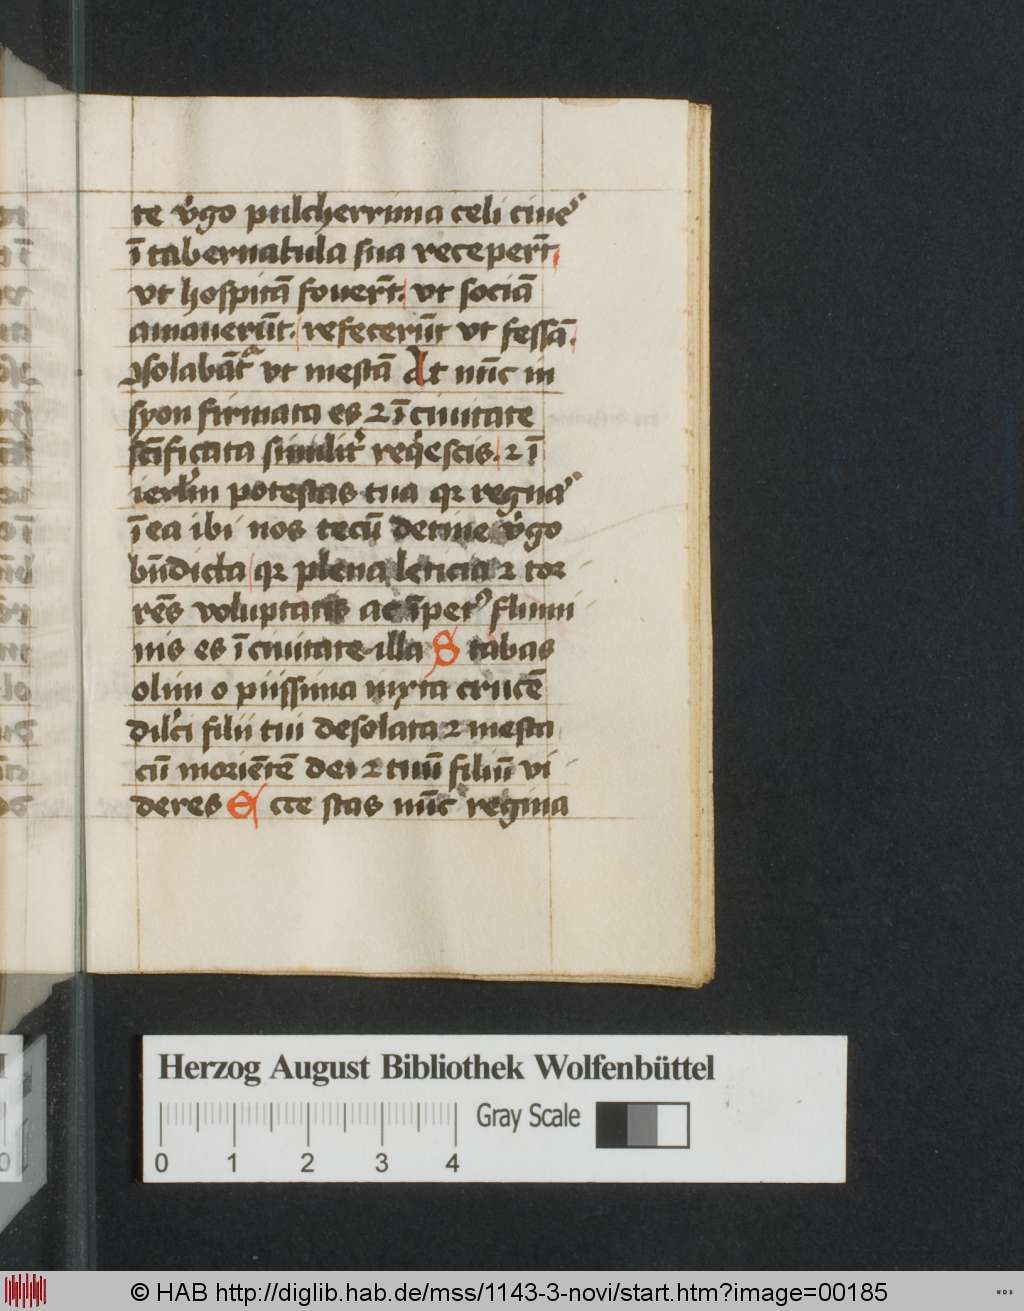 te v̓go pulcherrima celi ciues
ī tabernacula sua recepert̄
vt hospitā fouert̄. vt sociā
amauerūt. refecerūt vt fessā.
ꝯsolabāt᷑ vt mestā At nūc in
syon firmata es ⁊ ī ciuitate
scīficata similit᷑ reqͥescis. ⁊ ī
ierl̓m potestas tua qꝛ regnas
ī ea ibi nos tecū detine v̓go
bn̄dicta qꝛ plena leticia ⁊ tor
rēs voluptatis ac īpetꝰ flumi
nis es ī ciuitate illa Stabas
olim o piissima iuxta crucē
dilc̓i filii tui desolata ⁊ mesta
cū moriētē dei ⁊ tuū filiū vi
deres Ecce stas nūc regina
Herzog August Bibliothek Wolfenbüttel
Gray Scale
0 1 2 3 4
© HAB http://diglib.hab.de/mss/1143-3-novi/start.htm?image=00185